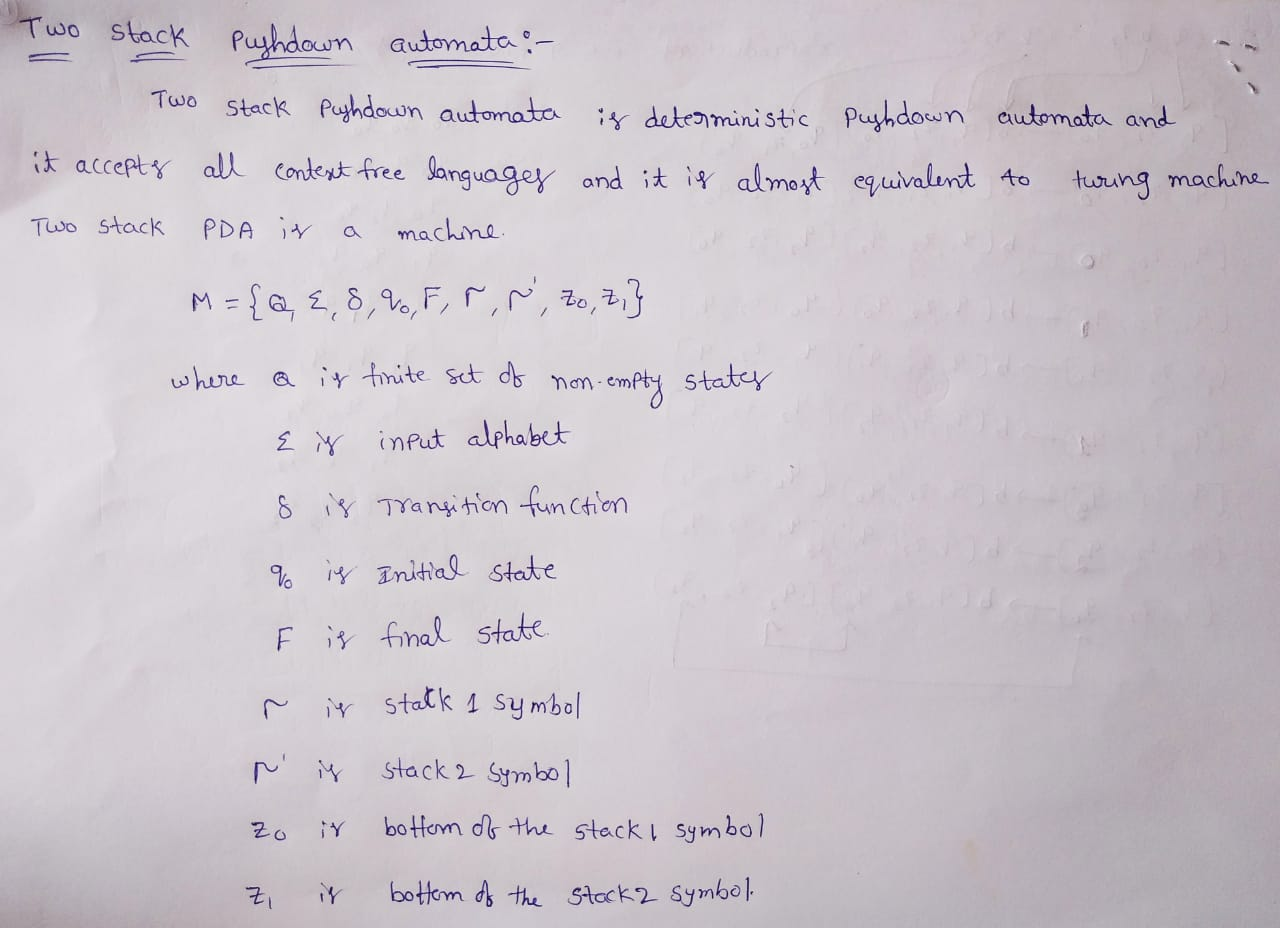 Two stack Pushdown automata :-
Two stack Pushdown automata is deterministic Pushdown automata and
it accepts all context free languages and it is almost equivalent to turing machine
Two stack PDA is a machine.
M = {Q, Σ, δ, q₀, F, Γ, Γ', z₀, z₁}
where Q is finite set of non-empty states
Σ is input alphabet
δ is Transition function
q₀ is Initial state
F is final state.
Γ is stack 1 symbol
Γ' is stack 2 symbol
z₀ is bottom of the stack 1 symbol
z₁ is bottom of the stack 2 symbol.